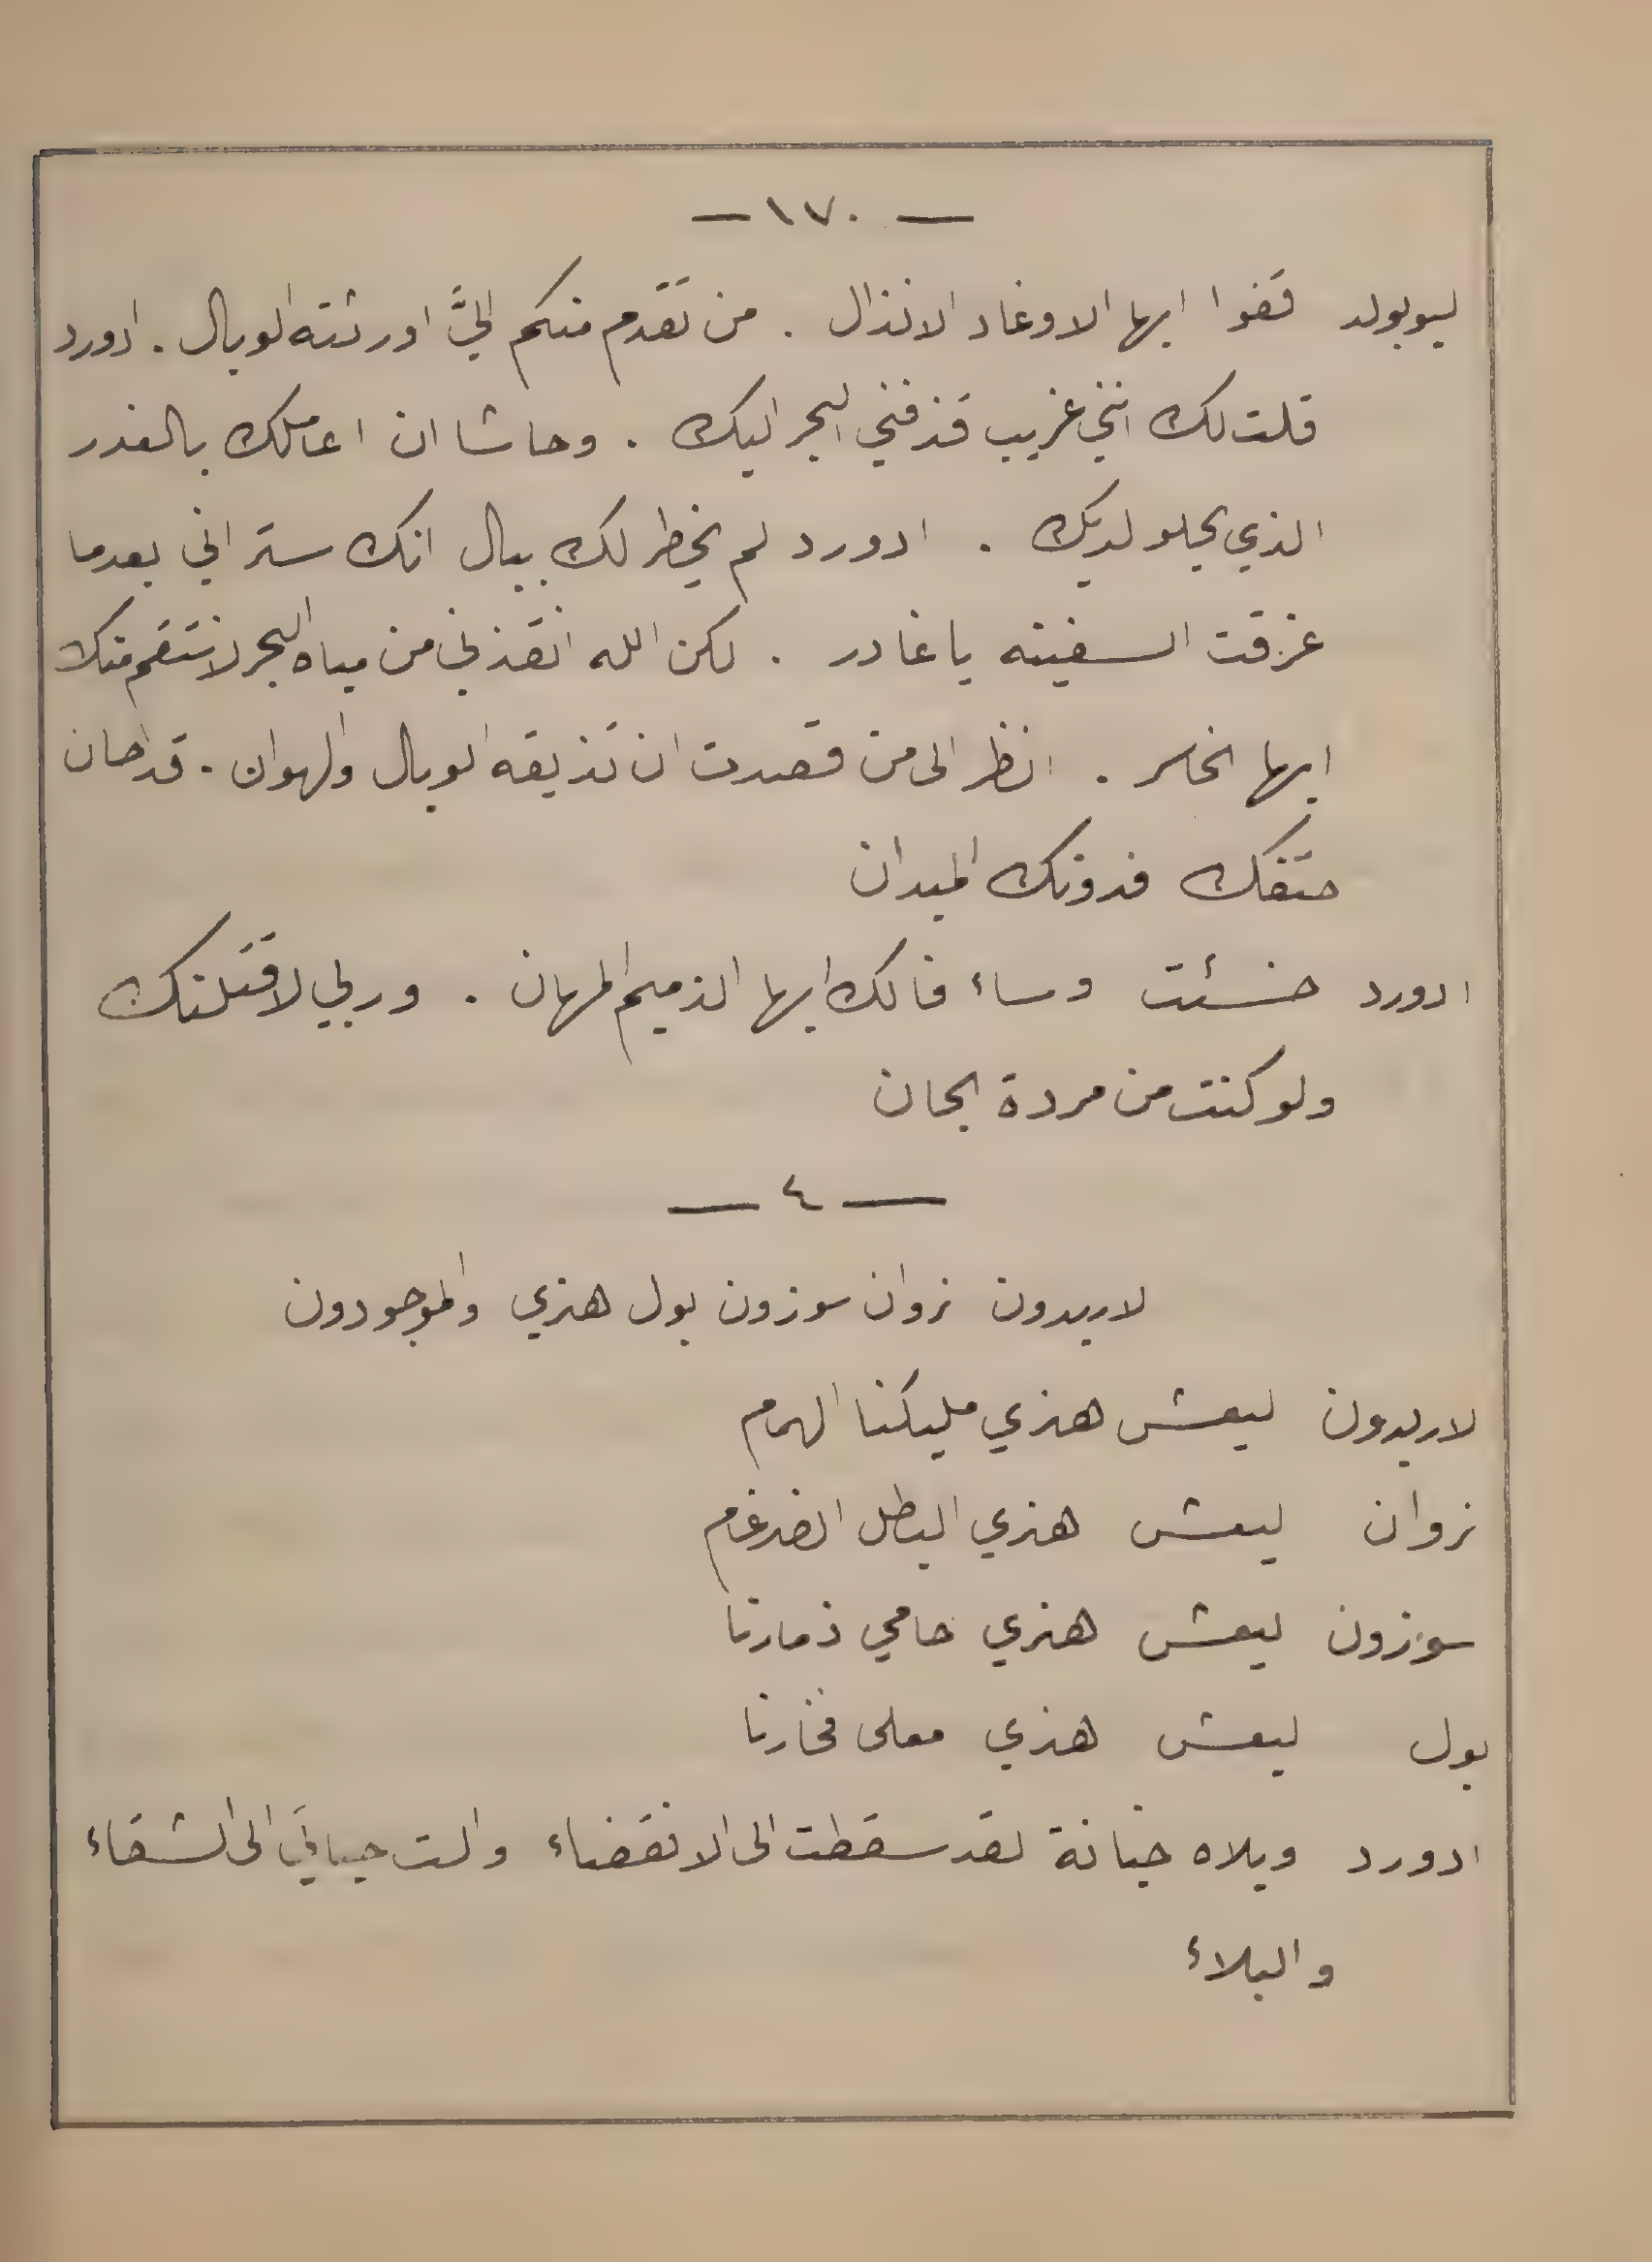 — ١٧٠ —
ليوبولد قفوا ايها الاوغاد الانذال . من تقدم منكم اليَّ اورثته الوبال . ادورد
قلت لك انني غريب قذفني البحر اليك . وحاشا ان اعاملك بالغدر
الذي يحلو لديك . ادورد لم يخطر لك ببال انك ستراني بعدما
غرقت السفينه يا غادر . لكن الله انقذني من مياه البحر لانتقم منك
ايها الخاسر . انظر الى من قصدت ان تذيقه الوبال والهوان . قد حان
حتفك فدونك الميدان
ادورد خسئت وساء فالك ايها الذميم المهان . وربي لاقتلنك
ولو كنت من مردة الجان
— ٤ —
لاريدون نروان سوزون بول هنري والموجودون
لاريدون ليعش هنري مليكنا الهمام
نروان ليعش هنري البطل الضرغام
سوزون ليعش هنري حامي ذمارنا
بول ليعش هنري معلى فخارنا
ادورد ويلاه خيانة لقد سقطت الى الانقضاء والت حياتي الى الشقاء
والبلاء